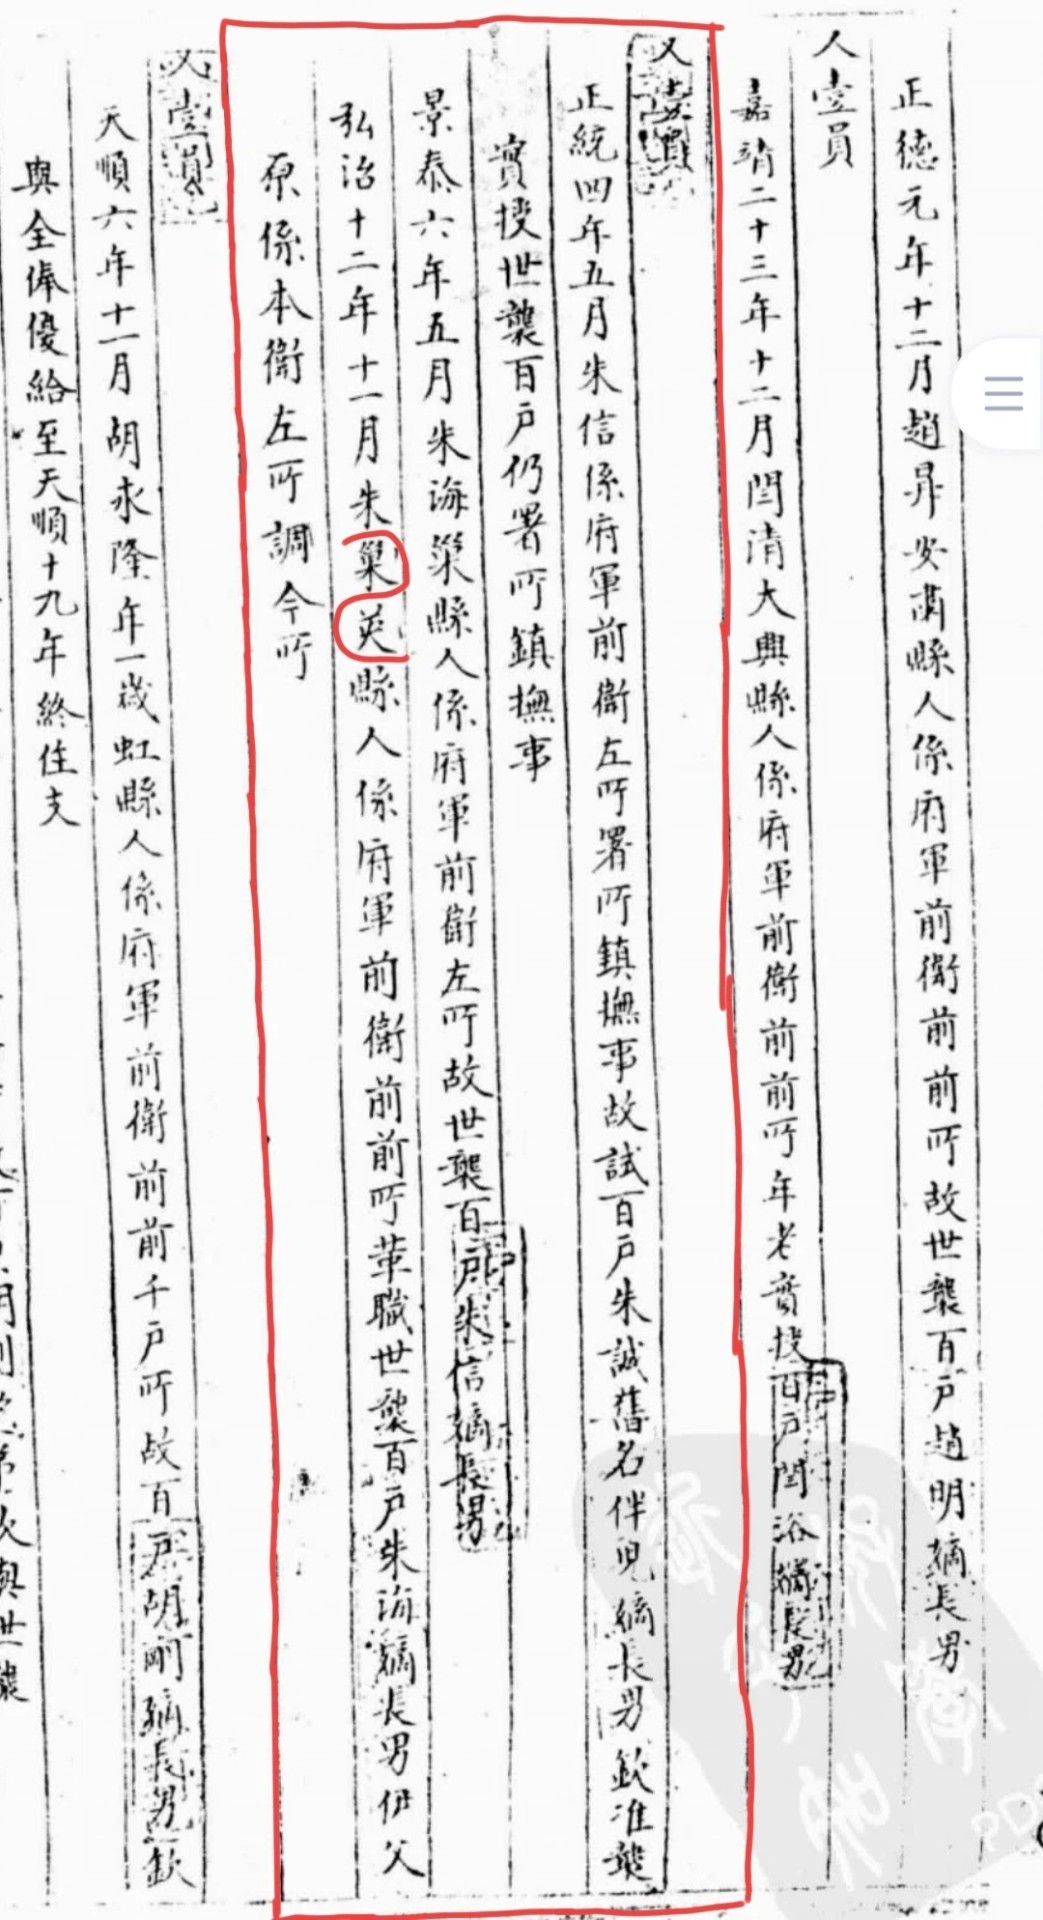 正德元年十二月趙昇安肅縣人係府軍前衛前前所故世襲百戶趙明嫡長男
人壹員
嘉靖二十三年十二月閆清大興縣人係府軍前衛前前所年老實授百戶閆浴嫡長男
又壹員
正統四年五月朱信係府軍前衛左所署所鎮撫事故試百戶朱誠舊名伴兒嫡長男欽准襲
實授世襲百戶仍署所鎮撫事
景泰六年五月朱海巢縣人係府軍前衛左所故世襲百戶朱信嫡長男
弘治十二年十一月朱巢英縣人係府軍前衛前前所革職世襲百戶朱海嫡長男伊父
原係本衛左所調今所
又壹員
天順六年十一月胡永隆年一歲虹縣人係府軍前衛前前千戶所故百戶胡剛嫡長男欽
與全俸優給至天順十九年終住支